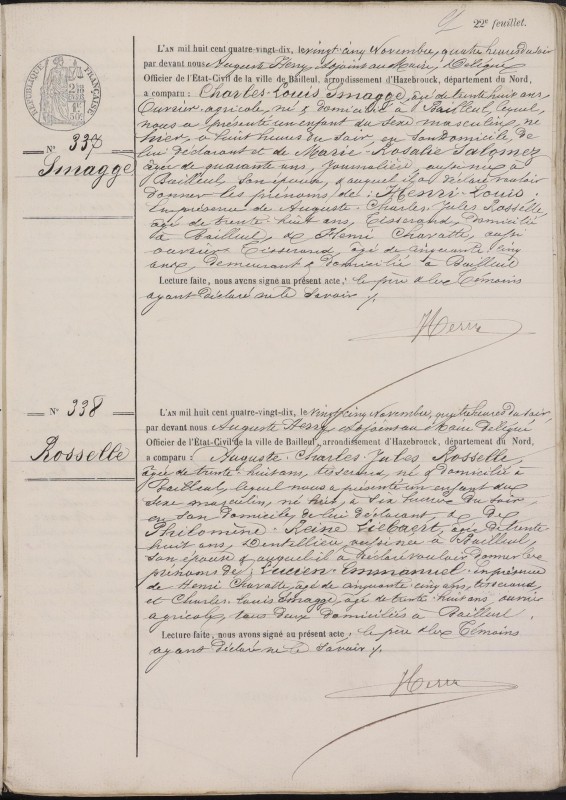 22e feuillet.
RÉPUBLIQUE FRANÇAISE
L'AN mil huit cent quatre-vingt-dix, le vingt cinq Novembre, quatre heures du soir
par devant nous Auguste Heny Adjoint au Maire, Délégué
Officier de l'Etat-Civil de la ville de Bailleul, arrondissement d'Hazebrouck, département du Nord,
a comparu : Charles-Louis Smagge, âgé de trente huit ans,
Ouvrier agricole, né & domicilié à Bailleul, lequel
nous a présenté un enfant du sexe masculin, né
hier, à huit heures du soir, en son domicile, de
N° 337
lui déclarant et de Marie-Rosalie Salomez
Smagge
âgée de quarante ans, journalière aussi née à
Bailleul, son épouse, & auquel il a déclaré vouloir
donner les prénoms de : Henri-Louis.
En présence de Auguste-Charles-Jules Rosselle,
âgé de trente-huit ans, Tisserand, domicilié
à Bailleul, & Henri Chavatte, aussi
ouvrier Tisserand âgé de cinquante cinq
ans, demeurant & domicilié à Bailleul
Lecture faite, nous avons signé au présent acte; le père & les témoins
ayant déclaré ne le savoir ./.
N° 338
L'AN mil huit cent quatre-vingt-dix, le vingt cinq Novembre, quatre heures du soir,
par devant nous Auguste Heny Adjoint au Maire délégué
Officier de l'Etat-Civil de la ville de Bailleul, arrondissement d'Hazebrouck, département du Nord,
Rosselle
a comparu : Auguste-Charles-Jules Rosselle,
âgé de trente-huit ans, tisserand, né & domicilié à
Bailleul, lequel nous a présenté un enfant du
sexe masculin, né hier, à six heures du soir,
en son domicile, de lui déclarant, & de
Philomène-Reine Liebaert, âgée de trente
huit ans, Dentellière aussi née à Bailleul,
son épouse & auquel il a déclaré vouloir donner les
prénoms de : Lucien-Emmanuel. En présence
de Henri Chavatte, âgé de cinquante cinq ans, tisserand,
et Charles-Louis Smagge, âgé de trente-huit ans, ouvrier
agricole, tous deux domiciliés à Bailleul.
Lecture faite, nous avons signé au présent acte; le père & les témoins
ayant déclaré ne le savoir ./.